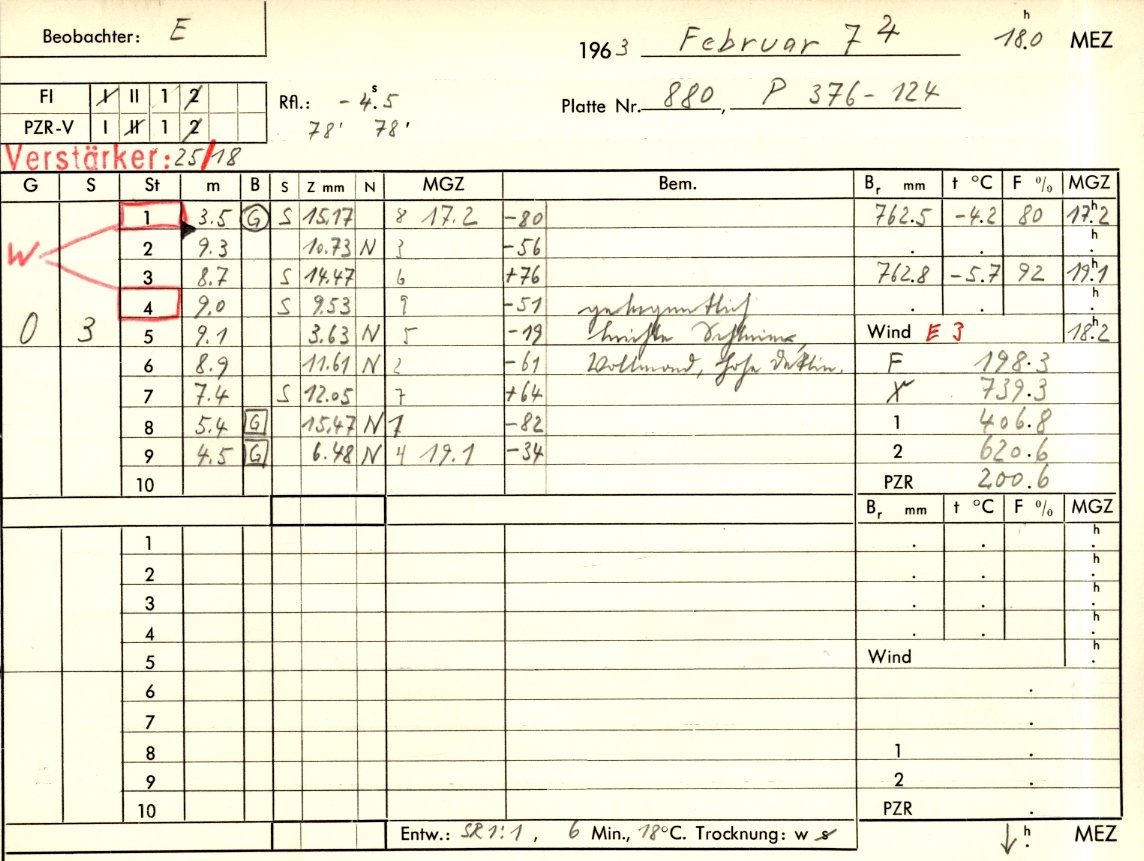 Beobachter: E
1963 Februar 7 4 18.0 h MEZ
FI I II 1 2
PZR-V I II 1 2
Rfl.: - 4.s5
78' 78'
Platte Nr. 880, P 376-124
Verstärker: 25/18
G S St m B S Z mm N MGZ Bem. Br mm t °C F % MGZ
1 3.5 G S 15.17 8 17.2 -80 762.5 -4.2 80 17.h2
2 9.3 10.73 N 3 -56 . . h.
W
3 8.7 S 14.47 6 +76 762.8 -5.7 92 19.h1
4 9.0 S 9.53 9 -51 gelegentlich . . h.
0 3 5 9.1 3.63 N 5 -19 leichte Schleier, Wind E 3 18.h2
6 8.9 11.61 N 2 -61 Vollmond, hohe Deklin. F 198.3
7 7.4 S 12.05 7 +64 X 739.3
8 5.4 G 15.47 N 1 -82 1 406.8
9 4.5 G 6.48 N 4 19.1 -34 2 620.6
10 PZR 200.6
Br mm t °C F % MGZ
1 . . h.
2 . . h.
3 . . h.
4 . . h.
5 Wind h.
6 .
7 .
8 1 .
9 2 .
10 PZR .
Entw.: SR 1:1, 6 Min., 18°C. Trocknung: w s ↓ h. MEZ